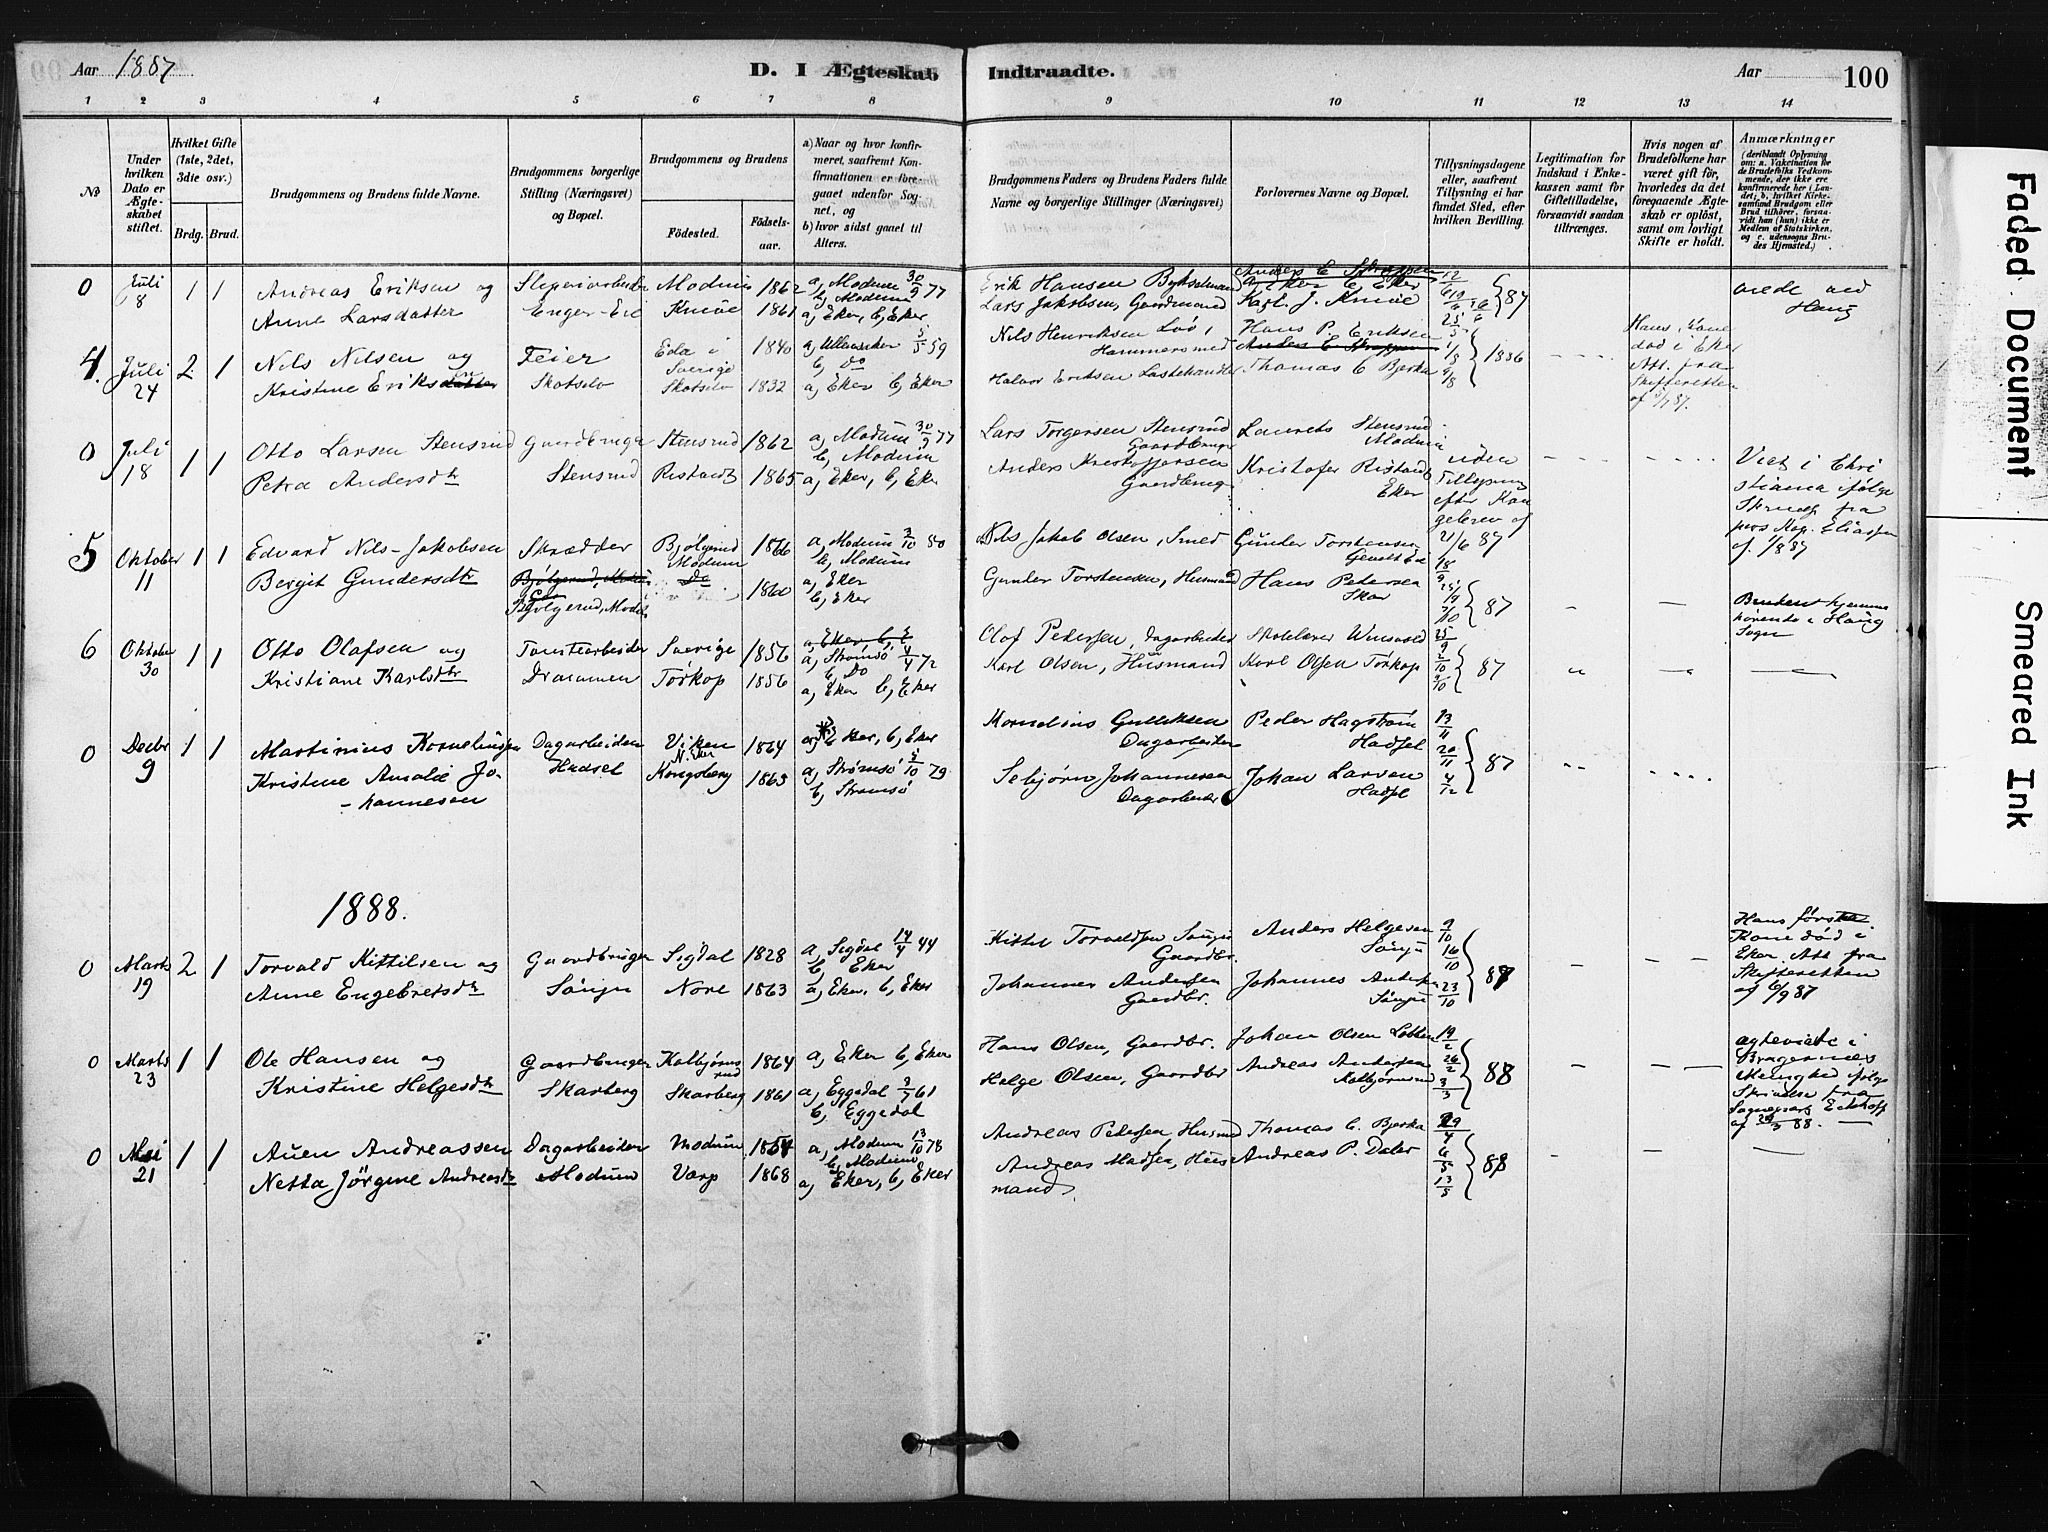 Aar 1887
D. I Ægteskab Indtraadte.
Aar
100
1 2 3 4 5 6 7 8 9 10 11 12 13 14
No
Under hvilken Dato er Ægteskabet stiftet.
Hvilket Gifte (1ste, 2det, 3die osv.)
Brdg. Brud.
Brudgommens og Brudens fulde Navne.
Brudgommens borgerlige Stilling (Næringsvei) og Bopæl.
Brudgommens og Brudens
Födested.
Födselsaar.
a) Naar og hvor konfirmeret, saafremt Konfirmationen er foregaaet udenfor Sognet, og
b) hvor sidst gaaet til Alters.
Brudgommens Faders og Brudens Faders fulde Navne og borgerlige Stillinger (Næringsvei)
Forlovernes Navne og Bopæl.
Tillysningsdagene eller, saafremt Tillysning ei har fundet Sted, efter hvilken Bevilling.
Legitimation for Indskud i Enkekassen samt for Giftetilladelse, forsaavidt saadan tiltrænges.
Hvis nogen af Brudefolkene har været gift för, hvorledes da det foregaaende Ægteskab er oplöst, samt om lovligt Skifte er holdt.
Anmærkninger
(deriblandt Oplysning om: a. Vakcination for de Brudefolks Vedkommende, der ikke ere konfirmerede her i Landet; b. hvilket Kirkesamfund Brudgom eller Brud tilhörer, forsaavidt han (hun) ikke er Medlem af Statskirken, og c. udensogns Brudes Hjemsted.)
0 Juli 8 1 1 Andreas Eriksen og Sliperiarbeider Modum 1862 a, Modum 30/9 77 b, Modum Erik Hansen Anders E Eker 12/6
Anne Larsdatter Enger-Eie Knive 1861 a, Eker, b, Eker Lars Jakobsen, Gaardmand Karl. J. Knive 19/6 87 Haug
4. Juli 24 2 1 Nils Nilsen og Feier Eda i Sverige 1840 a, Ullensaker 5/5 59 b, Do Nils Henriksen Hammersmed Hans P. Eriksen 1886 Hans Kone död i Eker Att. fra Skifteretten af 7/7 87.
Kristine Eriksdatter Skotselv Skotselv 1832 a, Eker b, Eker Halvor Eriksen Lastehandler Thomas C Bjerka
0 Juli 18 1 1 Otto Larsen Stensrud Gaardbruger Stensrud 1862 a, Modum 30/9 77 b, Modum Lars Torgersen Stensrud Gaardbruger Laurets Stensrud Modum uden Viet i Christiania ifølge
Petra Andersdtr Stensrud 1865 a, Eker, b, Eker Anders Kristoffersen Gaardbrug. Kristofer Eker Tillysning efter Kongebrev af 21/6 87 fra af 1/8 87
5 Oktober 11 1 1 Edvard Nils-Jakobsen Skrædder Bjølgerud Modum 1866 a, Modum 3/10 80 b, Modum Nils Jakob Olsen, Smed Gunder Torstensen 18/9
Bergit Gundersdtr Bjølgerud, Modum Do 1860 a, Eker b, Eker Gunder Torstensen, Husmand Hans Petersen Skar 25/9 87 - - Bruden hjemmehörende i Haug Sogn
6 Oktober 30 1 1 Otto Olafsen og Tomtearbeider Sverige 1856 a, Strømsø 4/4 72 b, Do Olof Pedersen, Dagarbeider Skolelærer 25/9
Kristiane Karlsdtr Drammen Törkop 1856 a, Eker b, Eker Karl Olsen, Husmand Karl Olsen Törkop 2/10 9/10 87
0 Decbr 9 1 1 Martinius Kornelius Dagarbeider Viken N. Eker 1864 a, Eker, b, Eker Kornelius Gulliksen Dagarbeider Peder Hagström Hadsel 13/11
Kristine Amalie Jo- Hadsel Kongsberg 1863 a, Strømsö 5/10 79 Sebjørn Johannesen Johan Larsen 20/11 87
-hannesen b, Strømsö Dagarbeider Hadsel 4/12
1888.
0 Marts 19 2 1 Torvald Kittilsen og Gaardbruger Sigdal 1828 a, Sigdal 14/4 44 b, Eker Kittel Torvaldsen Gaardbr. Anders Helgesen 9/10 16/10 Hans förste Kone död i Eker. Att fra Skifteretten af 6/9 87
Anne Engebretsdtr Nore 1863 a, Eker, b, Eker Johannes Andersen Gaardbr. Johannes Andersen 23/10 87
0 Marts 23 1 1 Ole Hansen og Gaardbruger Kolbjørnsrud 1864 a, Eker b, Eker Hans Olsen, Gaardbr. Johan Olsen 19/2 ægteviede i Bragernes Menighed ifølge
Kristine Helgesdtr Skarberg Skarberg 1861 a, Eggedal 3/7 61 b, Eggedal Helge Olsen, Gaardbr Andreas Andersen Kolbjørnsrud 26/2 3/3 88 - - Skrivelse fra Sognepræst Eckhoff af 88.
0 Mai 21 1 1 Auen Andreassen Dagarbeider Modum 1854 a, Modum 13/10 78 b, Modum Andreas Petersen Husmd Thomas C. Bjerka 29/4
Netta Jörgine Andreasdtr Modum Varp 1868 a, Eker, b, Eker Andreas Madsen, Husmand. Andreas P. Daler 6/5 13/5 88 - -
Faded Document
Smeared Ink